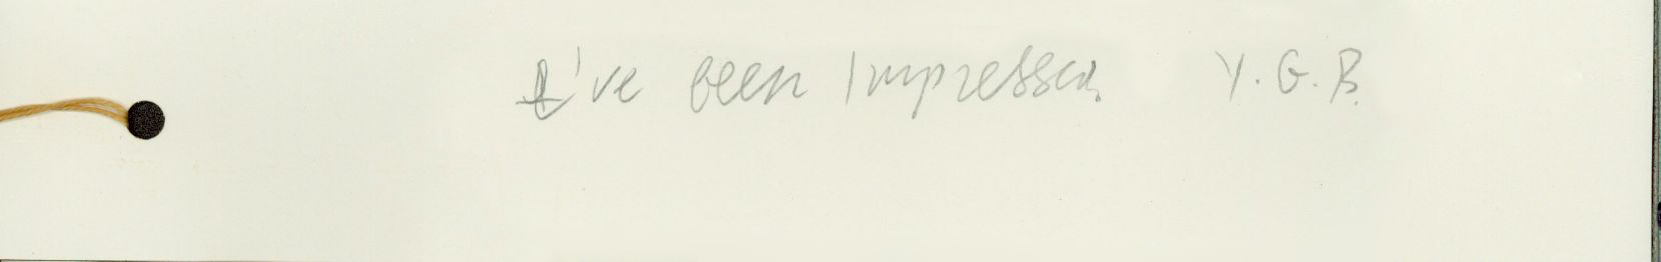 I've been Impressed. Y.G.B.